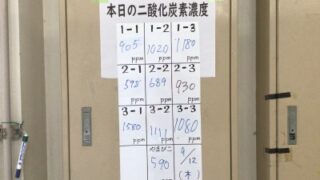 本日の二酸化炭素濃度
1-1 1-2 1-3
905 1020 1180
ppm ppm ppm
2-1 2-2 2-3
595 689 930
ppm ppm ppm
3-1 3-2 3-3
1580 1111 1080
ppm ppm ppm
やまびこ 9/12
590 (木)
ppm